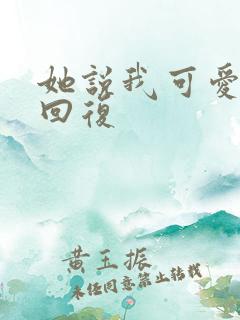 她說我可愛
回復
黃玉振
未任同意禁止轉載